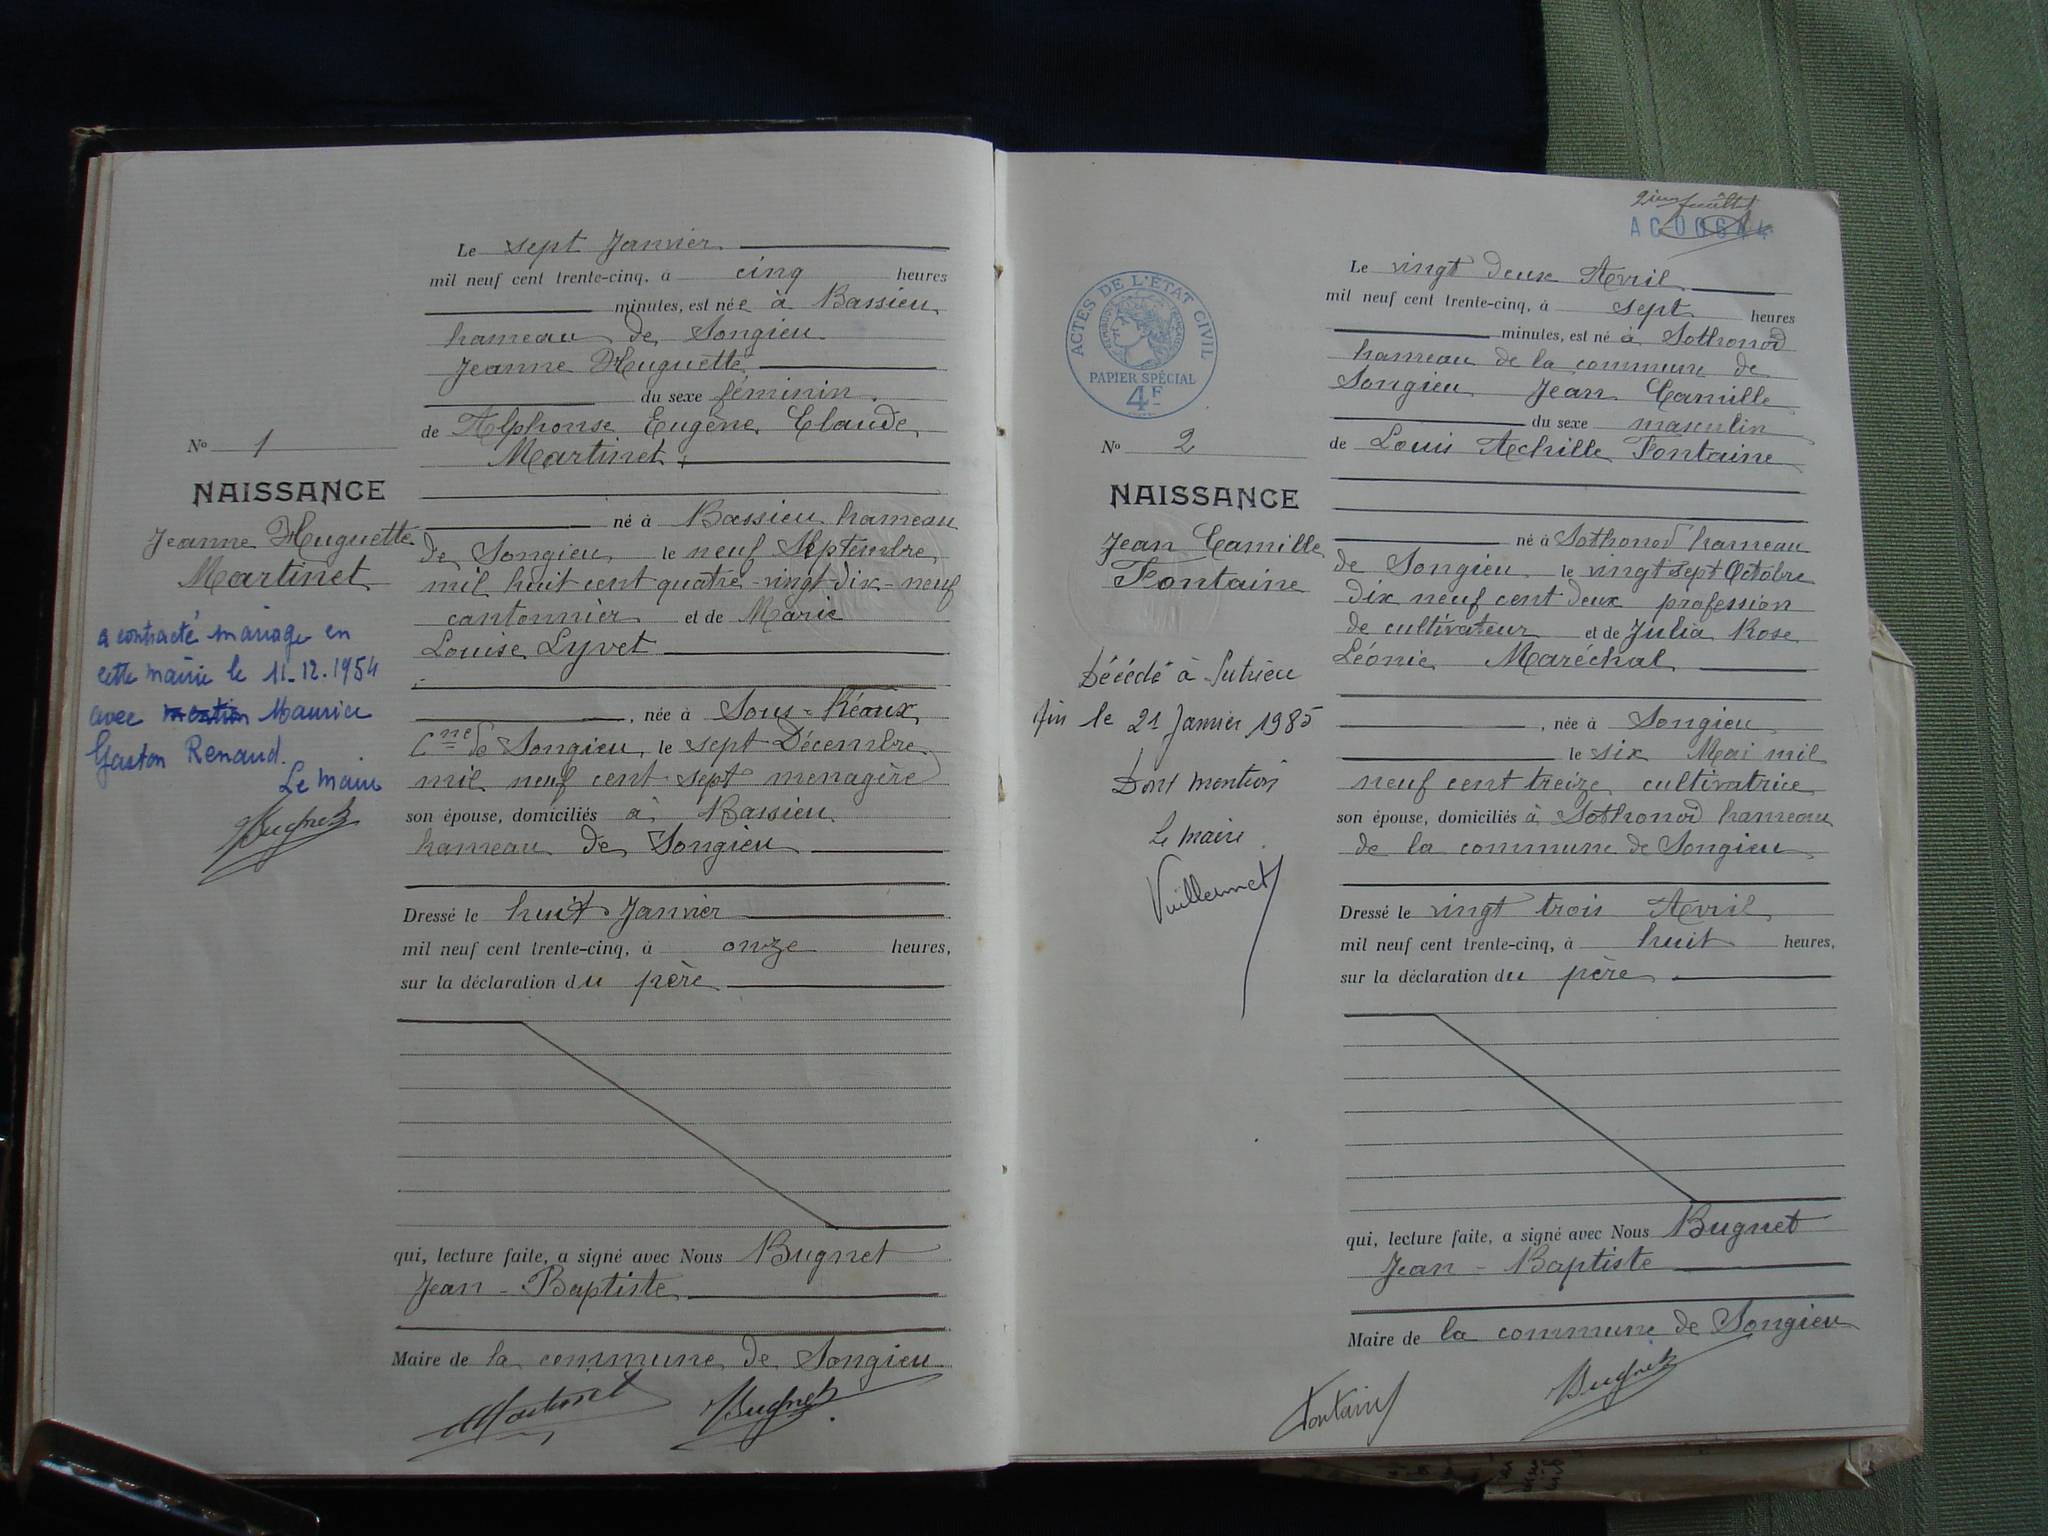 Le sept Janvier
mil neuf cent trente-cinq, à cinq heures
minutes, est née à Bassieu
hameau de Songieu
Jeanne Huguette
du sexe féminin.
de Alphonse Eugène Claude
Martinet
né à Bassieu hameau
de Songieu le neuf Septembre
mil huit cent quatre-vingt dix-neuf
cantonnier et de Marie
Louise Lyvet
, née à Sous-Réaux
Cne de Songieu, le sept Décembre
mil neuf cent sept menagère
son épouse, domiciliés à Bassieu
hameau de Songieu
Dressé le huit Janvier
mil neuf cent trente-cinq, à onze heures,
sur la déclaration du père
qui, lecture faite, a signé avec Nous Bugnet
Jean-Baptiste
Maire de la commune de Songieu
Martinet Bugnet
No 1
NAISSANCE
Jeanne Huguette
Martinet
a contracté mariage en
cette mairie le 11.12.1954
avec Maurice
Gaston Renaud.
Le Maire
Bugnet
2ième feuillet
AC00644
Le vingt deux Avril
mil neuf cent trente-cinq, à sept heures
minutes, est né à Sothonod
hameau de la commune de
Songieu Jean Camille
du sexe masculin
de Louis Achille Fontaine
né à Sothonod hameau
de Songieu le vingt sept Octobre
dix neuf cent deux profession
de cultivateur et de Julia Rose
Léonie Maréchal
, née à Songieu
le six Mai mil
neuf cent treize cultivatrice
son épouse, domiciliés à Sothonod hameau
de la commune de Songieu
Dressé le vingt trois Avril
mil neuf cent trente-cinq, à huit heures,
sur la déclaration du père
qui, lecture faite, a signé avec Nous Bugnet
Jean-Baptiste
Maire de la commune de Songieu
Fontaine Bugnet
ACTES DE L'ÉTAT CIVIL
RÉPUBLIQUE FRANÇAISE
PAPIER SPÉCIAL
4F
No 2
NAISSANCE
Jean Camille
Fontaine
Décédé à Sutrieu
Ain le 21 Janvier 1985
Dont mention
Le maire
Vuillermet